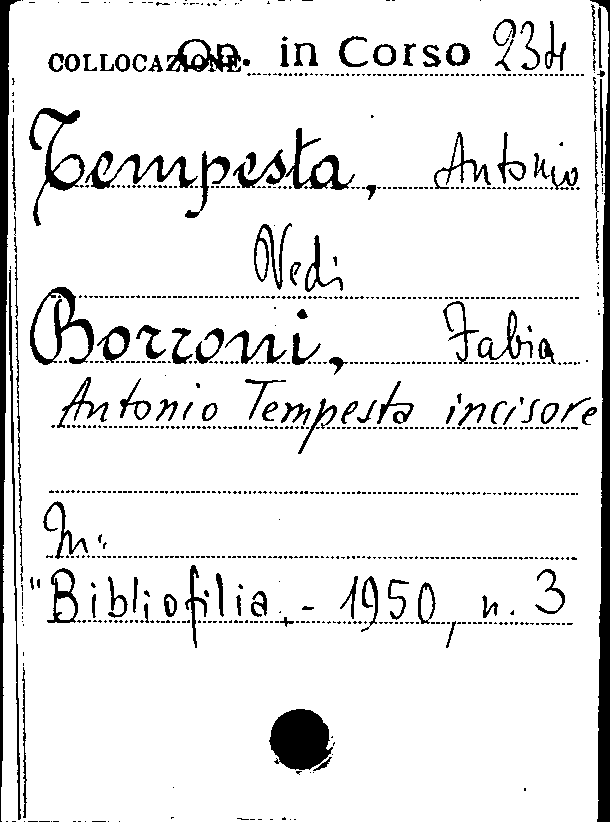 COLLOCAZIONE Op. in Corso 234
Tempesta, Antonio
Vedi
Borroni, Fabia
Antonio Tempesta incisore
In:
"Bibliofilia. - 1950, n. 3